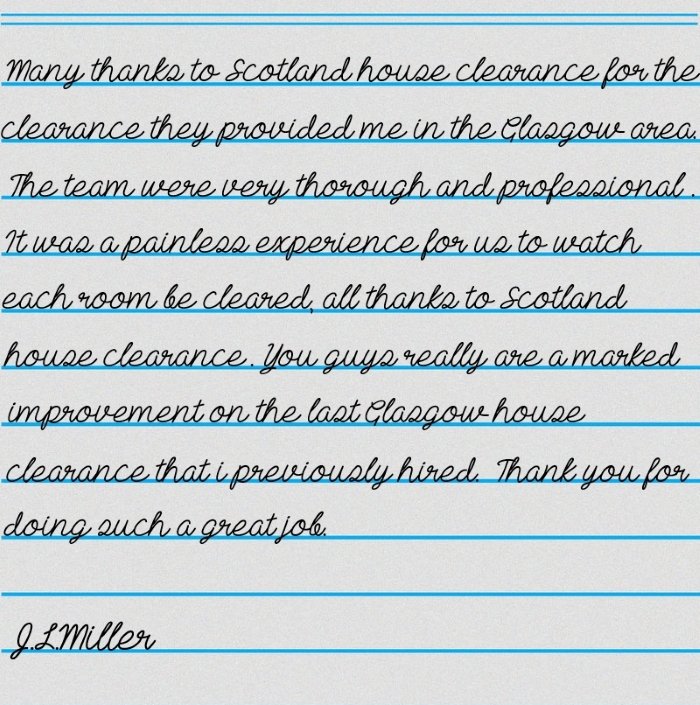 Many thanks to Scotland house clearance for the
clearance they provided me in the Glasgow area.
The team were very thorough and professional .
It was a painless experience for us to watch
each room be cleared, all thanks to Scotland
house clearance . You guys really are a marked
improvement on the last Glasgow house
clearance that i previously hired. Thank you for
doing such a great job.
J.L.Miller